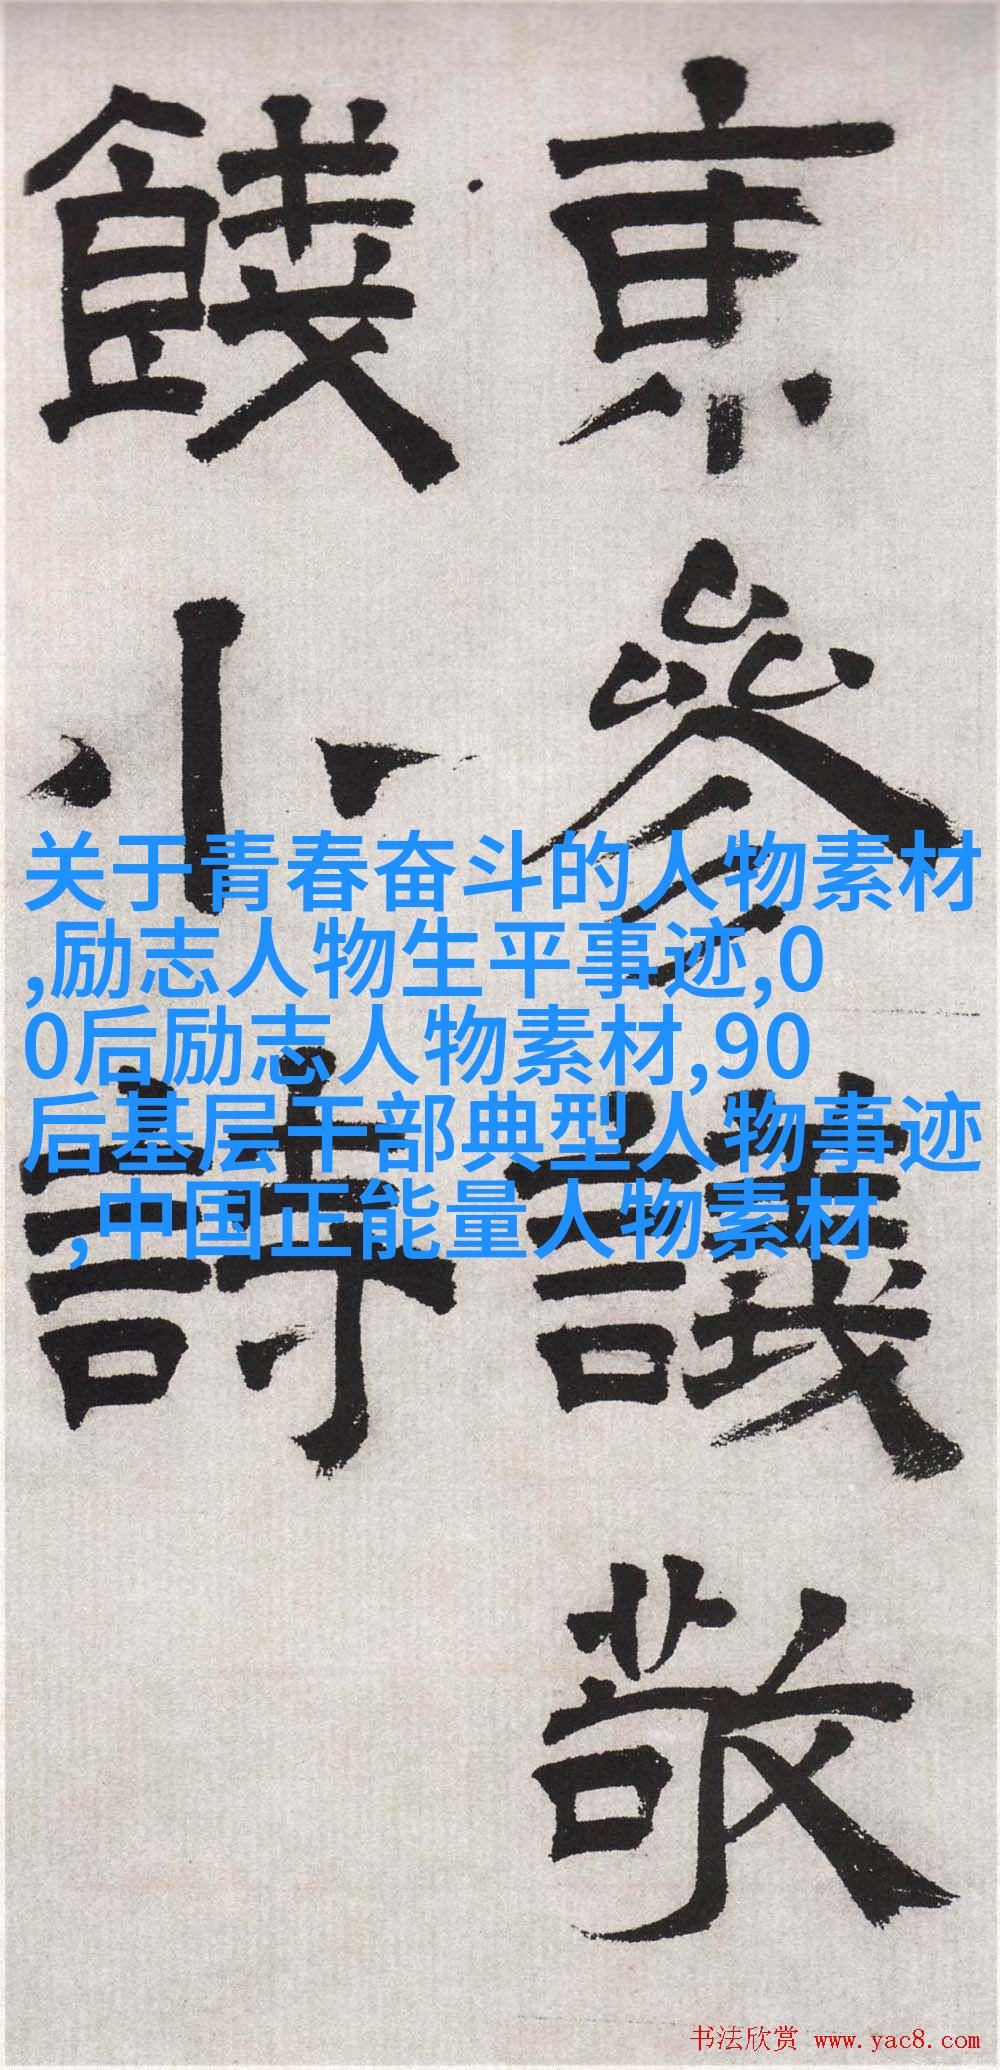 京參議敬
餞小詩
关于青春奋斗的人物素材
,励志人物生平事迹,0
0后励志人物素材,90
后基层干部典型人物事迹
,中国正能量人物素材
书法欣赏 www.yac8.com